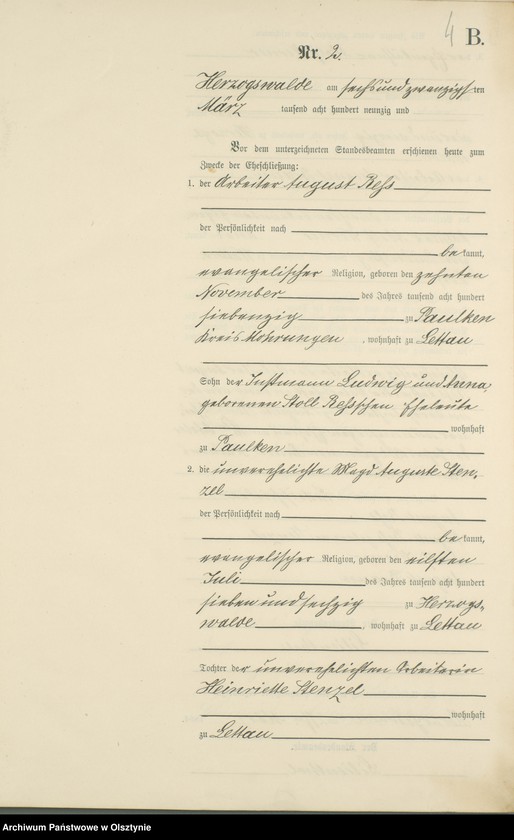 4 B.
Nr. 2.
Herzogswalde am sechsundzwanzigsten
März tausend acht hundert neunzig und
Vor dem unterzeichneten Standesbeamten erschienen heute zum
Zwecke der Eheschließung:
1. der Arbeiter August Reß
der Persönlichkeit nach
bekannt,
evangelischer Religion, geboren den zehnten
November des Jahres tausend acht hundert
siebenzig zu Paulken
Kreis Mohrungen, wohnhaft zu Lettau
Sohn der Instmann Ludwig und Anna,
geborenen Stoll Reß'schen Eheleute
wohnhaft
zu Paulken
2. die unverehelichte Magd Auguste Sten-
zel
der Persönlichkeit nach
bekannt,
evangelischer Religion, geboren den eilften
Juli des Jahres tausend acht hundert
sieben und sechzig zu Herzogs-
walde, wohnhaft zu Lettau
Tochter der unverehelichten Arbeiterin
Heinriette Stenzel
wohnhaft
zu Lettau
Archiwum Państwowe w Olsztynie